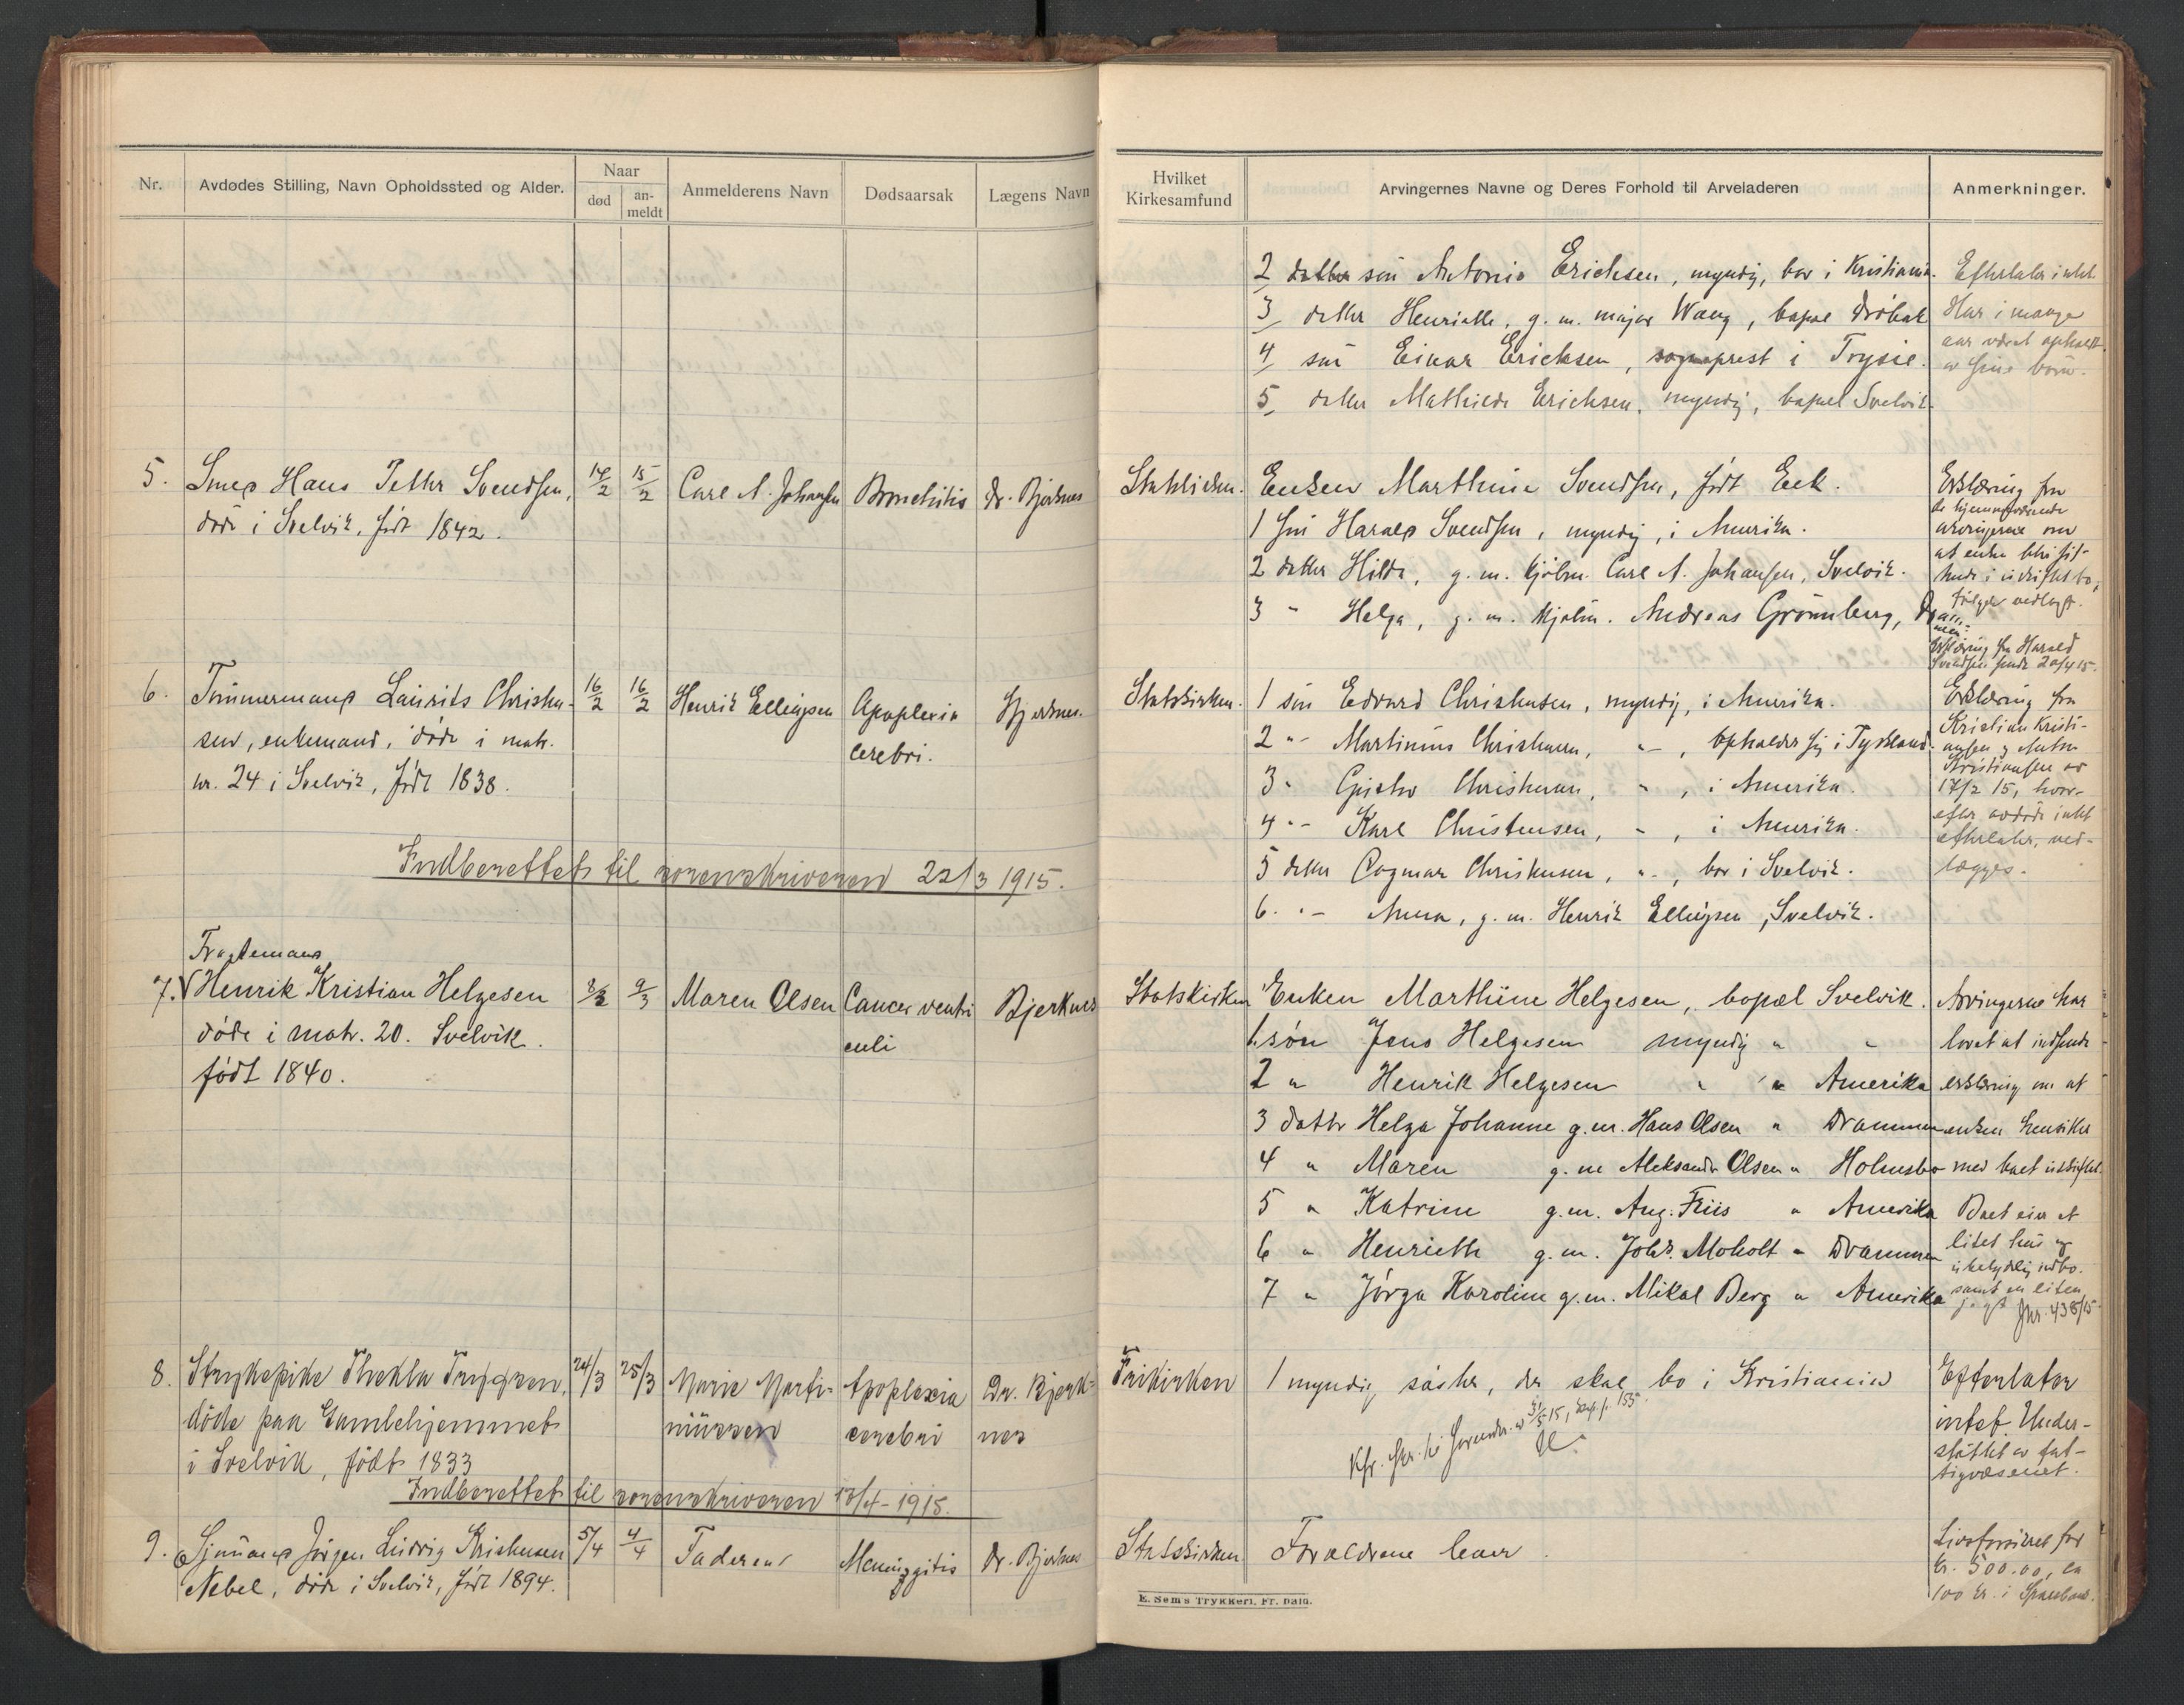 Nr.
Avdødes Stilling, Navn Opholdssted og Alder.
Naar
død
an-
meldt
Anmelderens Navn
Dødsaarsak
Lægens Navn
5.
Smed Hans Petter Svendsen,
døde i Svelvik, født 1842.
14/2
15/2
Carl A. Johansen
Bronchitis
Dr. Bjerknes
6.
Tømmermand Laurits Christen-
sen, enkemand, døde i matr.
nr. 24 i Svelvik, født 1838.
16/2
16/2
Henrik Ellingsen
Apoplexia
cerebri.
Bjerknes.
Indberettet til sorenskriveren 22/3 1915.
Fragtemand
7. Henrik Kristian Helgesen
døde i matr. 20. Svelvik.
født 1840.
8/3
9/3
Maren Olsen
Cancer ventri
culi
Bjerknes
8.
Strykepike Thekla Trygesen,
døde paa Gamlehjemmet
i Svelvik, født 1833
24/3
25/3
Marie Marti-
niussen
Apoplexia
cerebri
Dr. Bjerk-
nes
Indberettet til sorenskriveren 13/4-1915.
9.
Sjømand Jørgen Ludvig Kristensen
Nebel, døde i Svelvik, født 1894.
3/4
4/4
Faderen
Meninggitis
Dr. Bjerknes
Hvilket
Kirkesamfund
Arvingernes Navne og Deres Forhold til Arveladeren
Anmerkninger.
2 datter søn Antonio Erichsen, myndig, bor i Kristiania.
3 datter Henriette, g. m. major Wang, bopæl Drøbak
4 søn Einar Erichsen, sogneprest i Trysil.
5 datter Mathilde Erichsen, myndig, bopæl Svelvik.
Efterlater intet.
Har i mange
aar været ophold
av sine børn.
Statskirken.
Enken Marthine Svendsen, født Eek.
1 søn Harald Svendsen, myndig, i Amerika.
2 datter Hilda, g. m. kjøbm. Carl A. Johansen, Svelvik.
3 " Helga, g. m. kjøbm. Andreas Grønnberg, Dram-
men.
Erklæring fra
de hjemmeværende
arvingerne om
at enken blir sit-
tende i uskiftet bo,
følger vedlagt.
Erklæring fra Harald
Svendsen sendt 20/4 15.
Statskirken.
1 søn Edvard Christensen, myndig, i Amerika.
2 " Martinius Christensen, " , opholder sig i Tyskland.
3 " Gustav Christensen, " , i Amerika.
4 " Karl Christensen, " , i Amerika.
5 datter Dagmar Christensen, " , bor i Svelvik.
6. " Anna, g. m. Henrik Ellingsen, Svelvik.
Erklæring fra
Kristian Kristi-
ansen og Anton
Kristiansen av
17/2 15, hvor-
efter avdøde intet
efterlater, ved-
lægges.
Statskirken
Enken Marthine Helgesen, bopæl Svelvik.
1. søn Jens Helgesen myndig " "
2 " Henrik Helgesen " " Amerika
3 dattr Helga Johanne g.m. Hans Olsen " Drammen
4 " Maren g.m Aleksander Olsen " Holmsbo
5 " Katrine g.m. Aug. Friis " Amerika
6 " Henriette g.m. Johs. Moholt " Drammen
7 " Jørga Karoline g.m. Mikal Berg " Amerika
Arvingerne har
lovet at indsende
erklæring om at
enken hensitter
med boet uskiftet.
Boet eier et
litet hus og
ubetydelig indbo.
samt en liten
jagt Jnr. 438/15.
Frikirken
1 myndig søster, der skal bo i Kristiania
Efterlater
intet. Under-
støttet av fat-
tigvæsenet.
Statskirken
Forældrene lever.
Livsforsikret for
kr. 500.00, ca
100 kr. i Sparebank.
E. Sem's Trykkeri, Fr.hald.